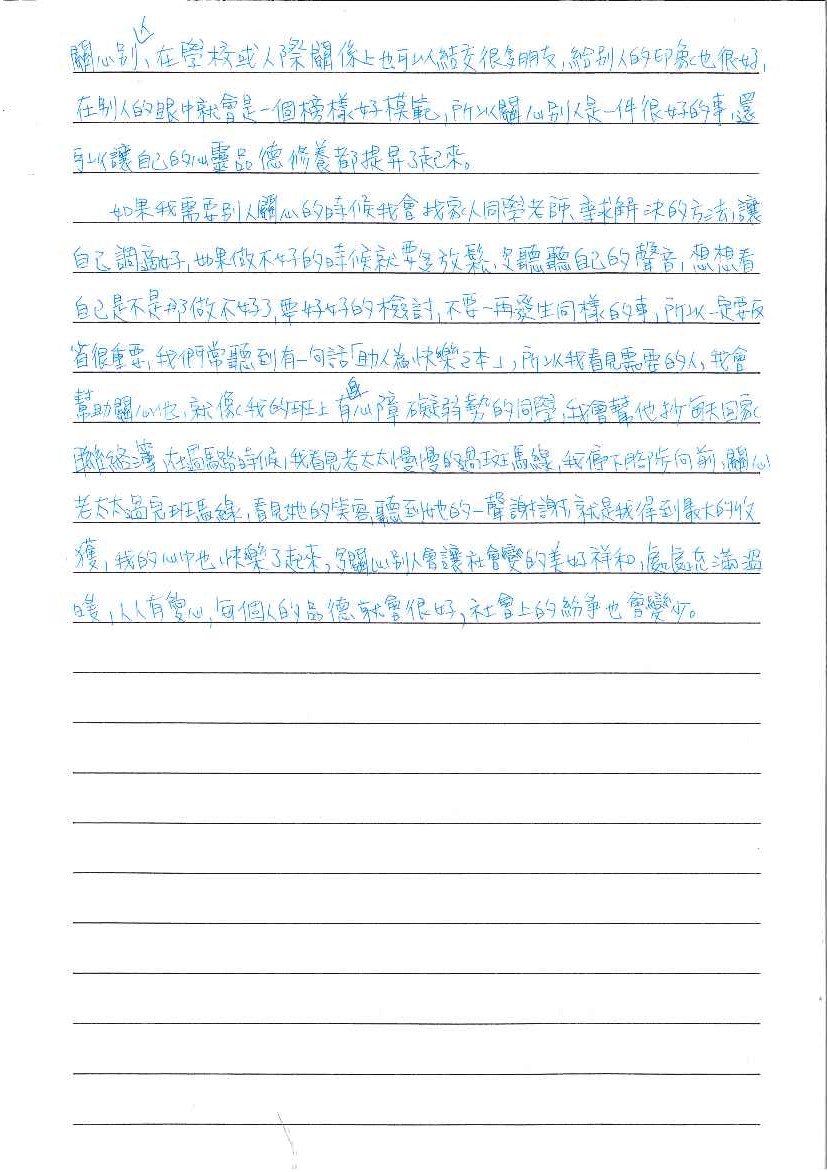 關心別人,在學校或人際關係上也可以結交很多朋友,給別人的印象也很好,
在別人的眼中就會是一個榜樣好模範,所以關心別人是一件很好的事,還
可以讓自己的心靈品德修養都提昇了起來。
如果我需要別人關心的時候我會找家人同學老師、尋求解決的方法,讓
自己調適好,如果做不好的時候就要去放鬆,多聽聽自己的聲音,想想看
自己是不是那做不好了,要好好的檢討,不要一再發生同樣的事,所以一定要反
省很重要,我們常聽到有一句話「助人為快樂之本」,所以我看見需要的人,我會
幫助關心他,就像我的班上有身心障礙弱勢的同學,我會幫他抄每天回家
聯絡簿,在過馬路時候,我看見老太太慢慢的過斑馬線,我停下腳步向前,關心
老太太過完斑馬線,看見她的笑容,聽到她的一聲謝謝,就是我得到最大的收
獲,我的心中也快樂了起來,多關心別人會讓社會變的美好祥和,處處充滿溫
暖,人人有愛心,每個人的品德就會很好,社會上的紛爭也會變少。